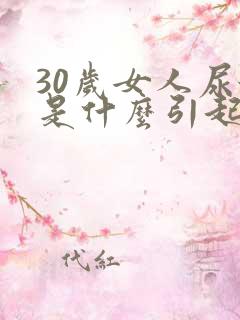 30歲女人尿
是什麼引起
代紅